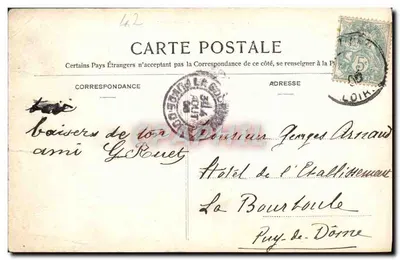 42
CARTE POSTALE
Certains Pays Étrangers n'acceptant pas la Correspondance de ce côté, se renseigner à la P
CORRESPONDANCE
ADRESSE
baisers de ton
ami G Ruet
Monsieur Georges Arnaud
Hôtel de l'Etablissement
La Bourboule
Puy-de-Dôme